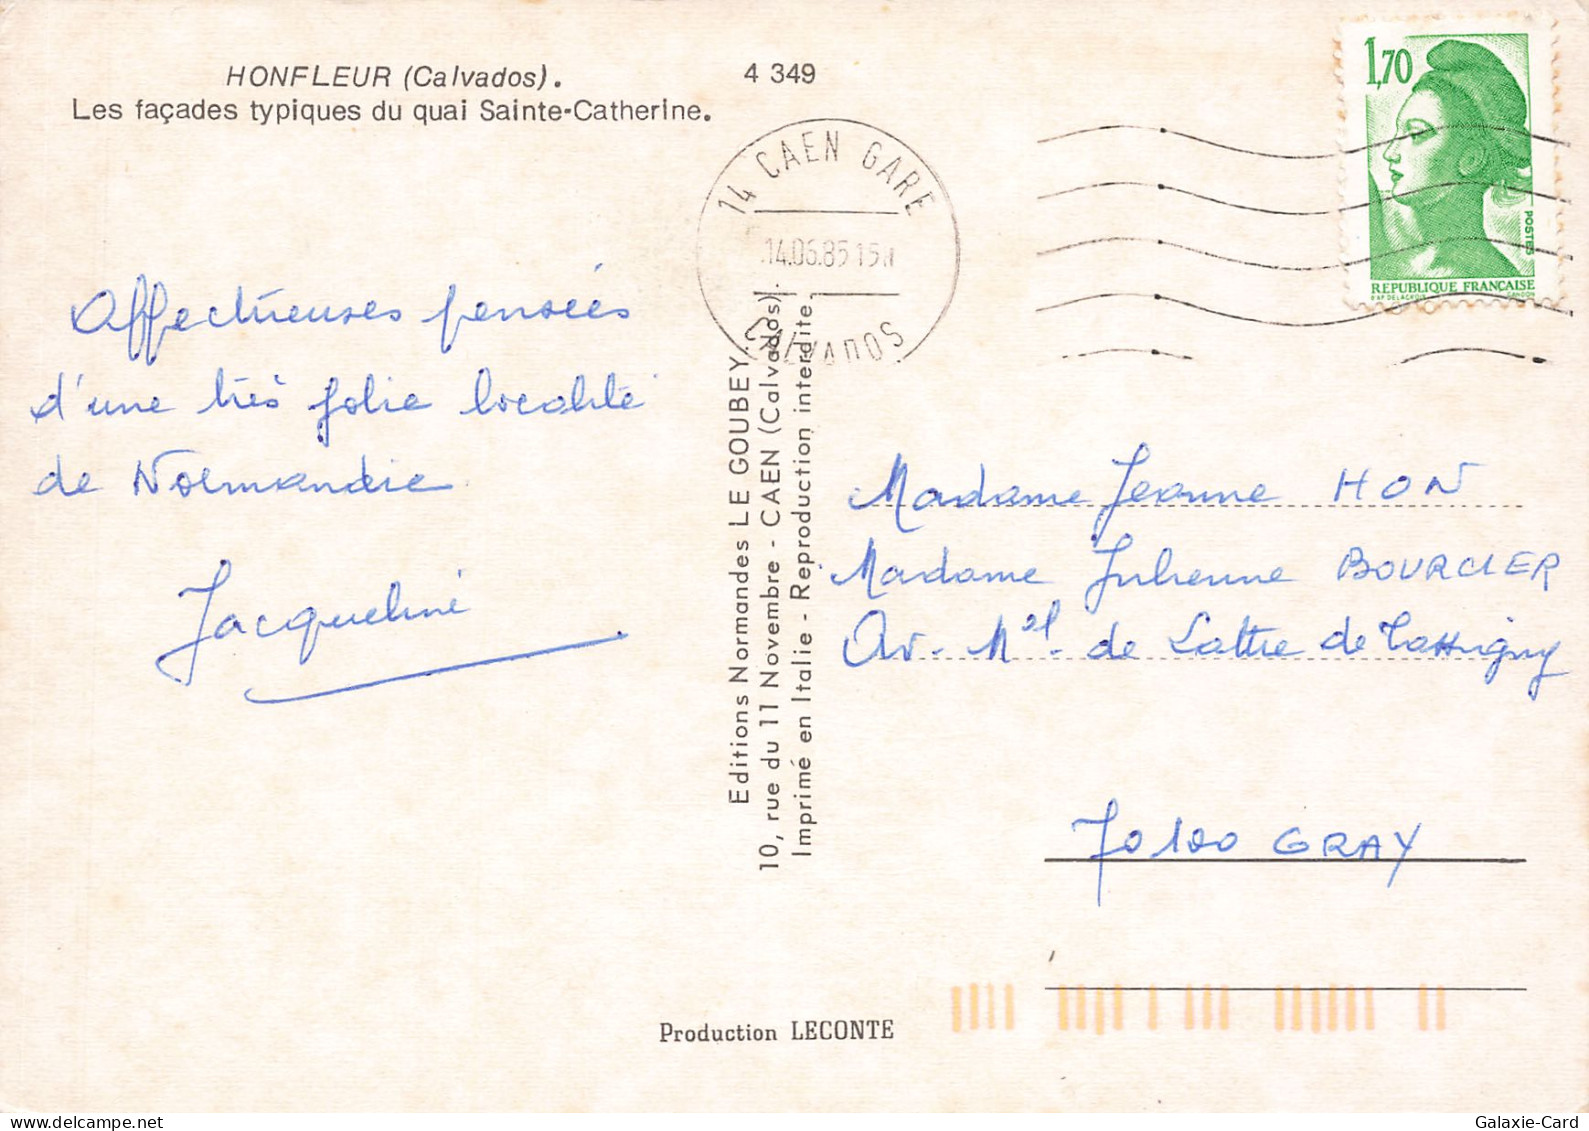 HONFLEUR (Calvados).
Les façades typiques du quai Sainte-Catherine.
4 349
14 CAEN GARE
14.06.85 15H
CALVADOS
1,70
POSTES
REPUBLIQUE FRANÇAISE
D'AP. DELACROIX GANDON
Affectueuses pensées
d'une très jolie localité
de Normandie
Jacqueline
Editions Normandes LE GOUBEY.
10, rue du 11 Novembre - CAEN (Calvados).
Imprimé en Italie - Reproduction interdite.
Madame Jeanne HON
Madame Julienne BOURCIER
Av. Mal. de Lattre de Tassigny
70100 GRAY
Production LECONTE
Galaxie-Card